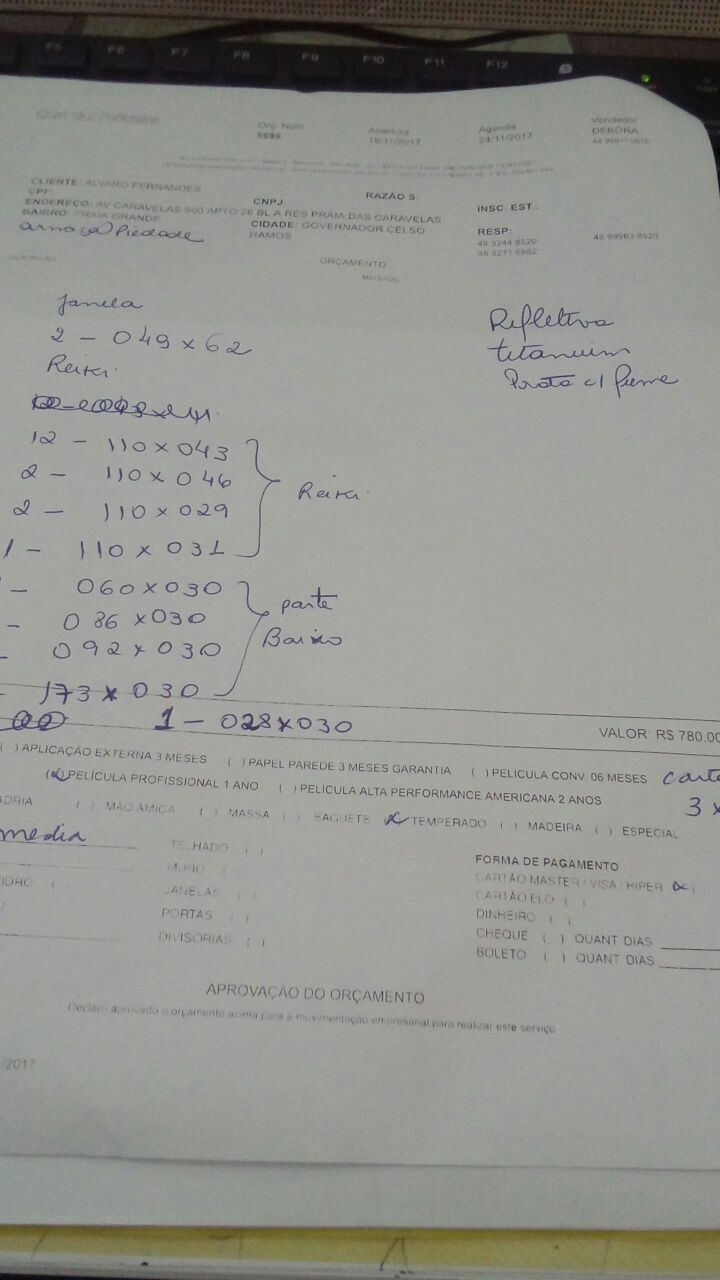 F5 F6 F7 F8 F9 F10 F11 F12
Orç. Num Abertura Agenda Vendedor
5696 18/11/2017 24/11/2017 DEBORA
CLIENTE: ALVARO FERNANDES
CPF: CNPJ: RAZÃO S:
ENDEREÇO: AV CARAVELAS 500 APTO 26 BL A RES PRAIA DAS CARAVELAS INSC. EST.:
BAIRRO: PRAIA GRANDE CIDADE: GOVERNADOR CELSO RAMOS RESP:
48 3244 8520 48 99963 8520
48 3271 6662
Piedade
ORÇAMENTO
MATERIAL
Janela
2 - 049 x 62
Reiki.
12 - 110 x 043
2 - 110 x 046
2 - 110 x 029
1 - 110 x 031
Reiki.
- 060 x 030
- 086 x 030
- 092 x 030
- 173 x 030
parte
Baixo
1 - 028 x 030
Refletiva
titanuim
Prata c/ fume
VALOR: R$ 780.00
( ) APLICAÇÃO EXTERNA 3 MESES ( ) PAPEL PAREDE 3 MESES GARANTIA ( ) PELICULA CONV 06 MESES
(x) PELÍCULA PROFISSIONAL 1 ANO ( ) PELÍCULA ALTA PERFORMANCE AMERICANA 2 ANOS
3 x
( ) MÃO AMIGA ( ) MASSA ( ) BAGUETE (x) TEMPERADO ( ) MADEIRA ( ) ESPECIAL
media
TELHADO ( )
MURO ( )
JANELAS ( )
PORTAS ( )
DIVISÓRIAS ( )
FORMA DE PAGAMENTO
CARTÃO MASTER / VISA / HIPER (x)
CARTÃO ELO ( )
DINHEIRO ( )
CHEQUE ( ) QUANT DIAS
BOLETO ( ) QUANT DIAS
APROVAÇÃO DO ORÇAMENTO
Declaro aprovado o orçamento acima para a movimentação empresarial para realizar este serviço
2017